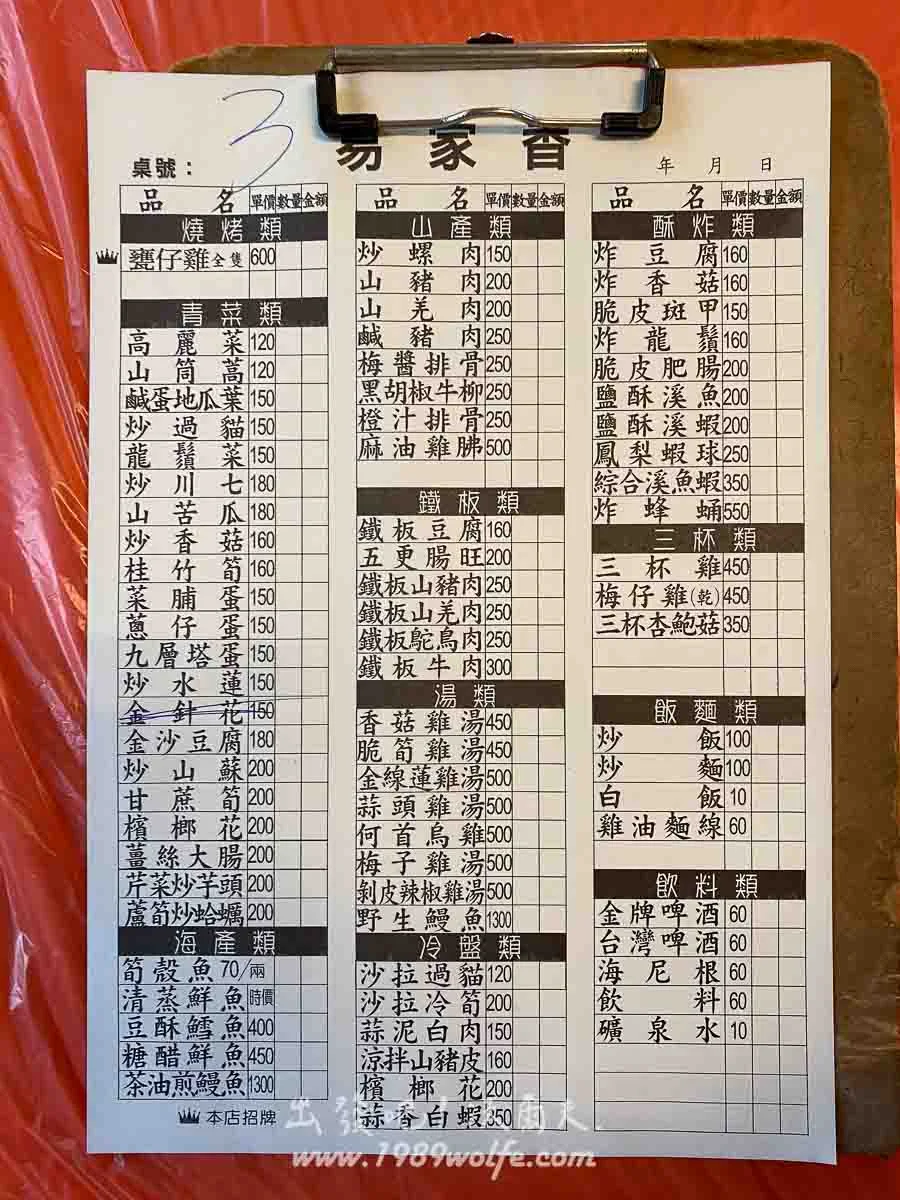 3
易家香
桌號：
年 月 日
品名 單價 數量 金額
燒烤類
甕仔雞全隻 600
青菜類
高麗菜 120
山筒蒿 120
鹹蛋地瓜葉 150
炒過貓 150
龍鬚菜 150
炒川七 180
山苦瓜 180
炒香菇 160
桂竹筍 160
菜脯蛋 150
蔥仔蛋 150
九層塔蛋 150
炒水蓮 150
金針花 150
金沙豆腐 180
炒山蘇 200
甘蔗筍 200
檳榔花 200
薑絲大腸 200
芹菜炒芋頭 200
蘆筍炒蛤蠣 200
海產類
筍殼魚 70/兩
清蒸鮮魚 時價
豆酥鱈魚 400
糖醋鮮魚 450
茶油煎鰻魚 1300
本店招牌
品名 單價 數量 金額
山產類
炒螺肉 150
山豬肉 200
山羌肉 200
鹹豬肉 250
梅醬排骨 250
黑胡椒牛柳 250
橙汁排骨 250
麻油雞胇 500
鐵板類
鐵板豆腐 160
五更腸旺 200
鐵板山豬肉 250
鐵板山羌肉 250
鐵板鴕鳥肉 250
鐵板牛肉 300
湯類
香菇雞湯 450
脆筍雞湯 450
金線蓮雞湯 500
蒜頭雞湯 500
何首烏雞 500
梅子雞湯 500
剝皮辣椒雞湯 500
野生鰻魚 1300
冷盤類
沙拉過貓 120
沙拉冷筍 200
蒜泥白肉 150
涼拌山豬皮 160
檳榔花 200
蒜香白蝦 350
品名 單價 數量 金額
酥炸類
炸豆腐 160
炸香菇 160
脆皮斑甲 150
炸龍鬚 160
脆皮肥腸 200
鹽酥溪魚 200
鹽酥溪蝦 200
鳳梨蝦球 250
綜合溪魚蝦 350
炸蜂蛹 550
三杯類
三杯雞 450
梅仔雞(乾) 450
三杯杏鮑菇 350
飯麵類
炒飯 100
炒麵 100
白飯 10
雞油麵線 60
飲料類
金牌啤酒 60
台灣啤酒 60
海尼根 60
飲料 60
礦泉水 10
www.1989wolfe.com